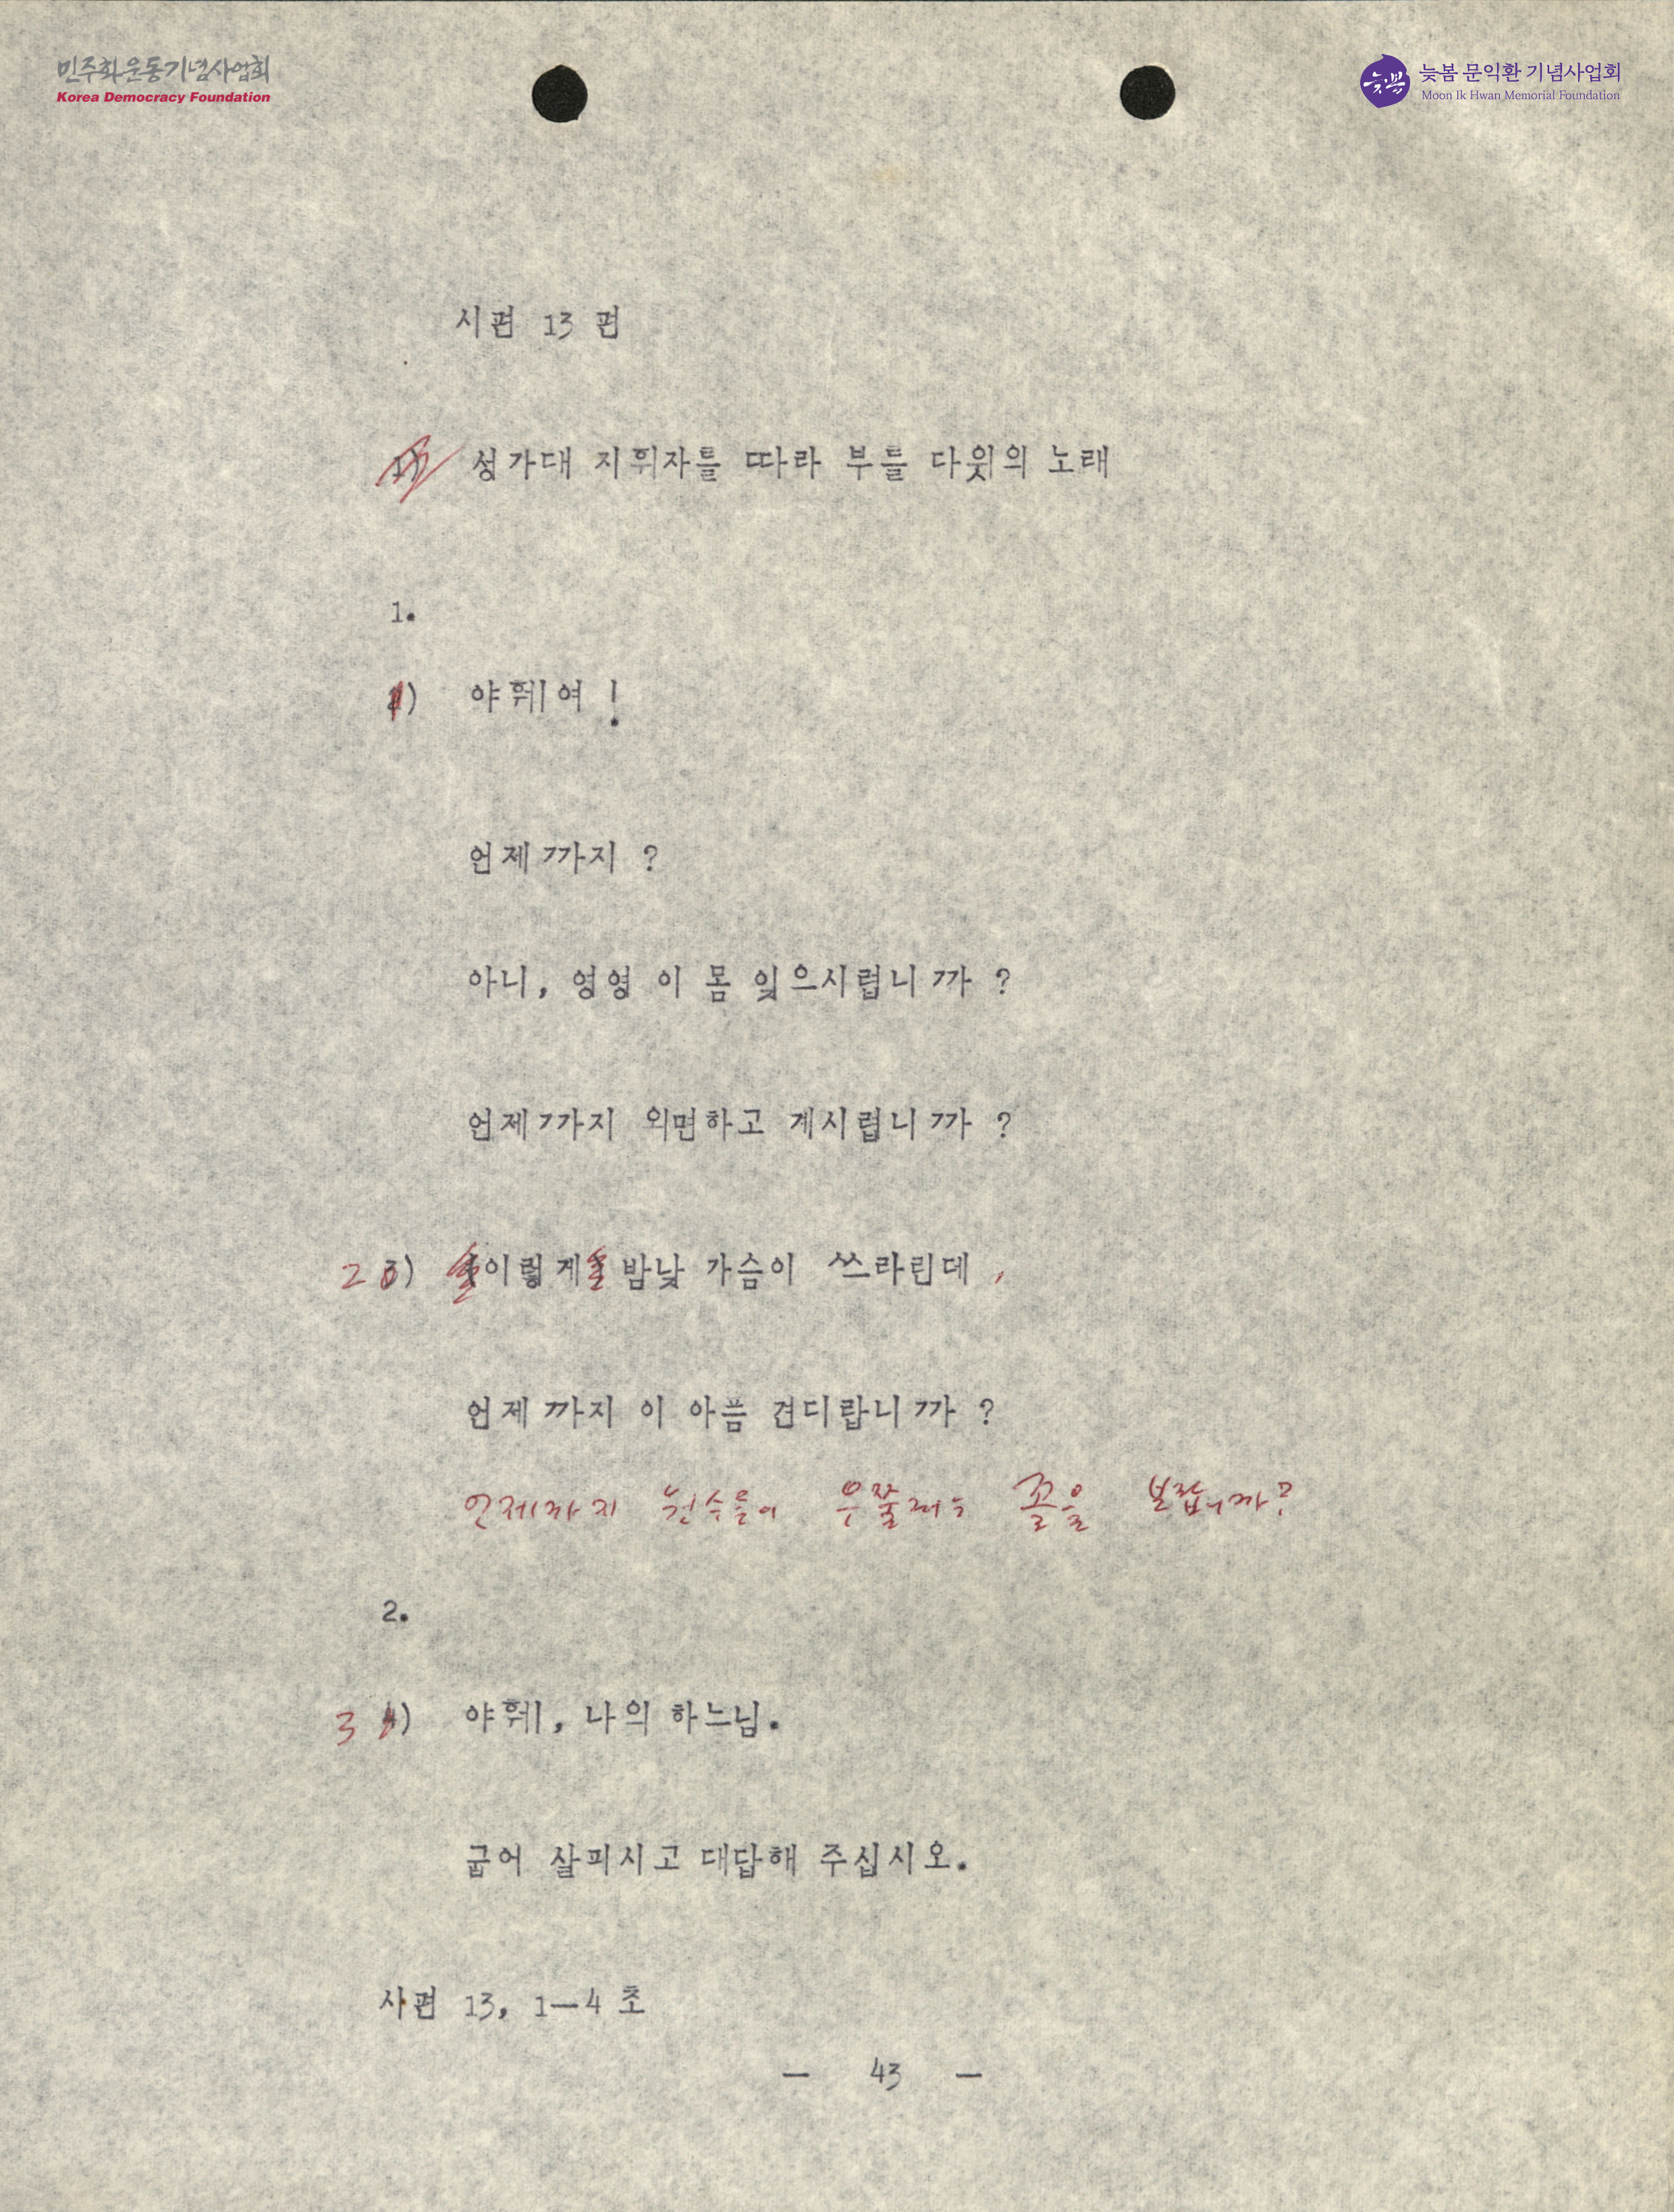 민주화운동기념사업회
Korea Democracy Foundation
늦봄
늦봄 문익환 기념사업회
Moon Ik Hwan Memorial Foundation
시편 13 편
1) 성가대 지휘자를 따라 부를 다윗의 노래
1.
1) 야훼여 !
언제까지 ?
아니, 영영 이 몸 잊으시렵니까 ?
언제까지 외면하고 계시렵니까 ?
2 3) 이렇게 밤낮 가슴이 쓰라린데 ,
언제까지 이 아픔 견디랍니까 ?
언제까지 원수들이 우쭐대는 꼴을 보랍니까?
2.
3 4) 야훼, 나의 하느님.
굽어 살피시고 대답해 주십시오.
사편 13, 1—4 초
— 43 —